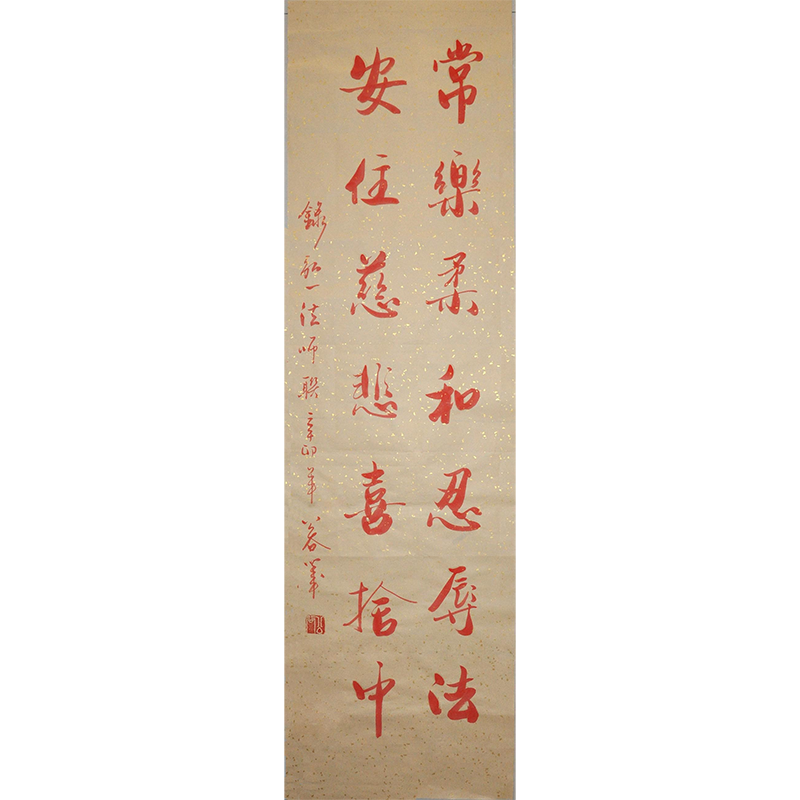 常樂柔和忍辱法
安住慈悲喜捨中
錄弘一法師聯辛卯年